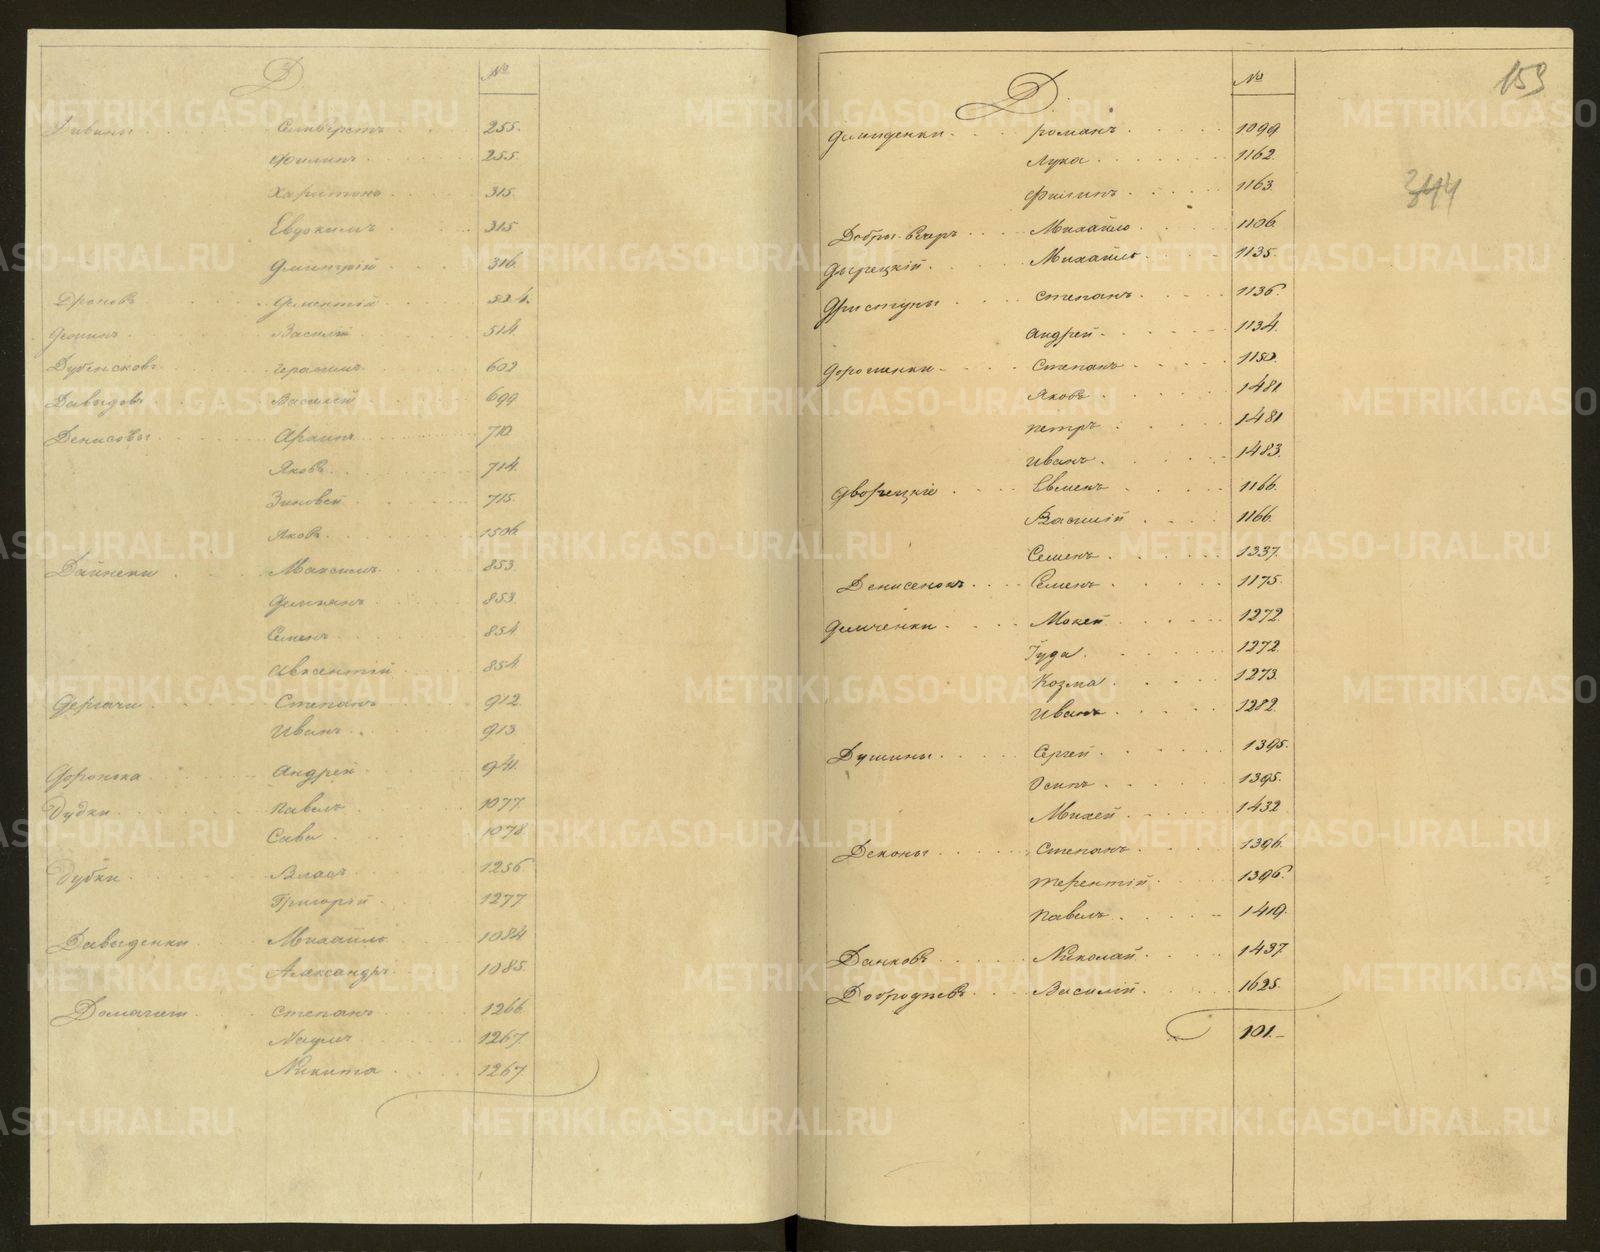 Д
№
Дивины Селиверстъ 255.
Филипъ 255.
Харитонъ 315.
Евдокимъ 315
Дмитрій 316.
Дроновъ Дементій
Фонинъ Василій 514.
Дубенсковъ Герасимъ 602
Давыдовъ Василій 699
Денисовы Архипъ 710
Яковъ 714.
Зиновей 715.
Яковъ 1506.
Дайнеки Максимъ 853.
Демьянъ 853.
Семенъ 854.
Авксентій 854.
Дергачи Степанъ 912.
Иванъ 913.
Доронька Андрей 941.
Дудки Павелъ 1077.
Сава 1078.
Дубки Власъ 1256
Григорій 1277
Давыденки Михайло 1084
Александръ 1085.
Степанъ 1266.
Наумъ 1267.
Никита 1267
Д
№
159
344
Демиденки Романъ 1099
Лука 1162.
Филипъ 1163.
Добры-вечръ Михайло 1106.
Дырецкій Михайло 1135.
Дристуны Степанъ 1136.
Андрей 1134.
Дорошенки Степанъ 1150.
Яковъ 1481
Петръ 1481
Иванъ 1483.
Дворецкіе Евменъ 1166.
Василій 1166.
Семенъ 1337.
Денисенокъ Семенъ 1175.
Демченки Мокей 1272.
Іуда 1272.
Козма 1273.
Иванъ 1282.
Душины Сергей 1395.
Осипъ 1395.
Михей 1432
Деконы Степанъ 1396.
Терентій 1396.
Павелъ 1419.
Данковъ Николай 1437.
Добродѣевъ Василій 1625.
101.
METRIKI.GASO-URAL.RU